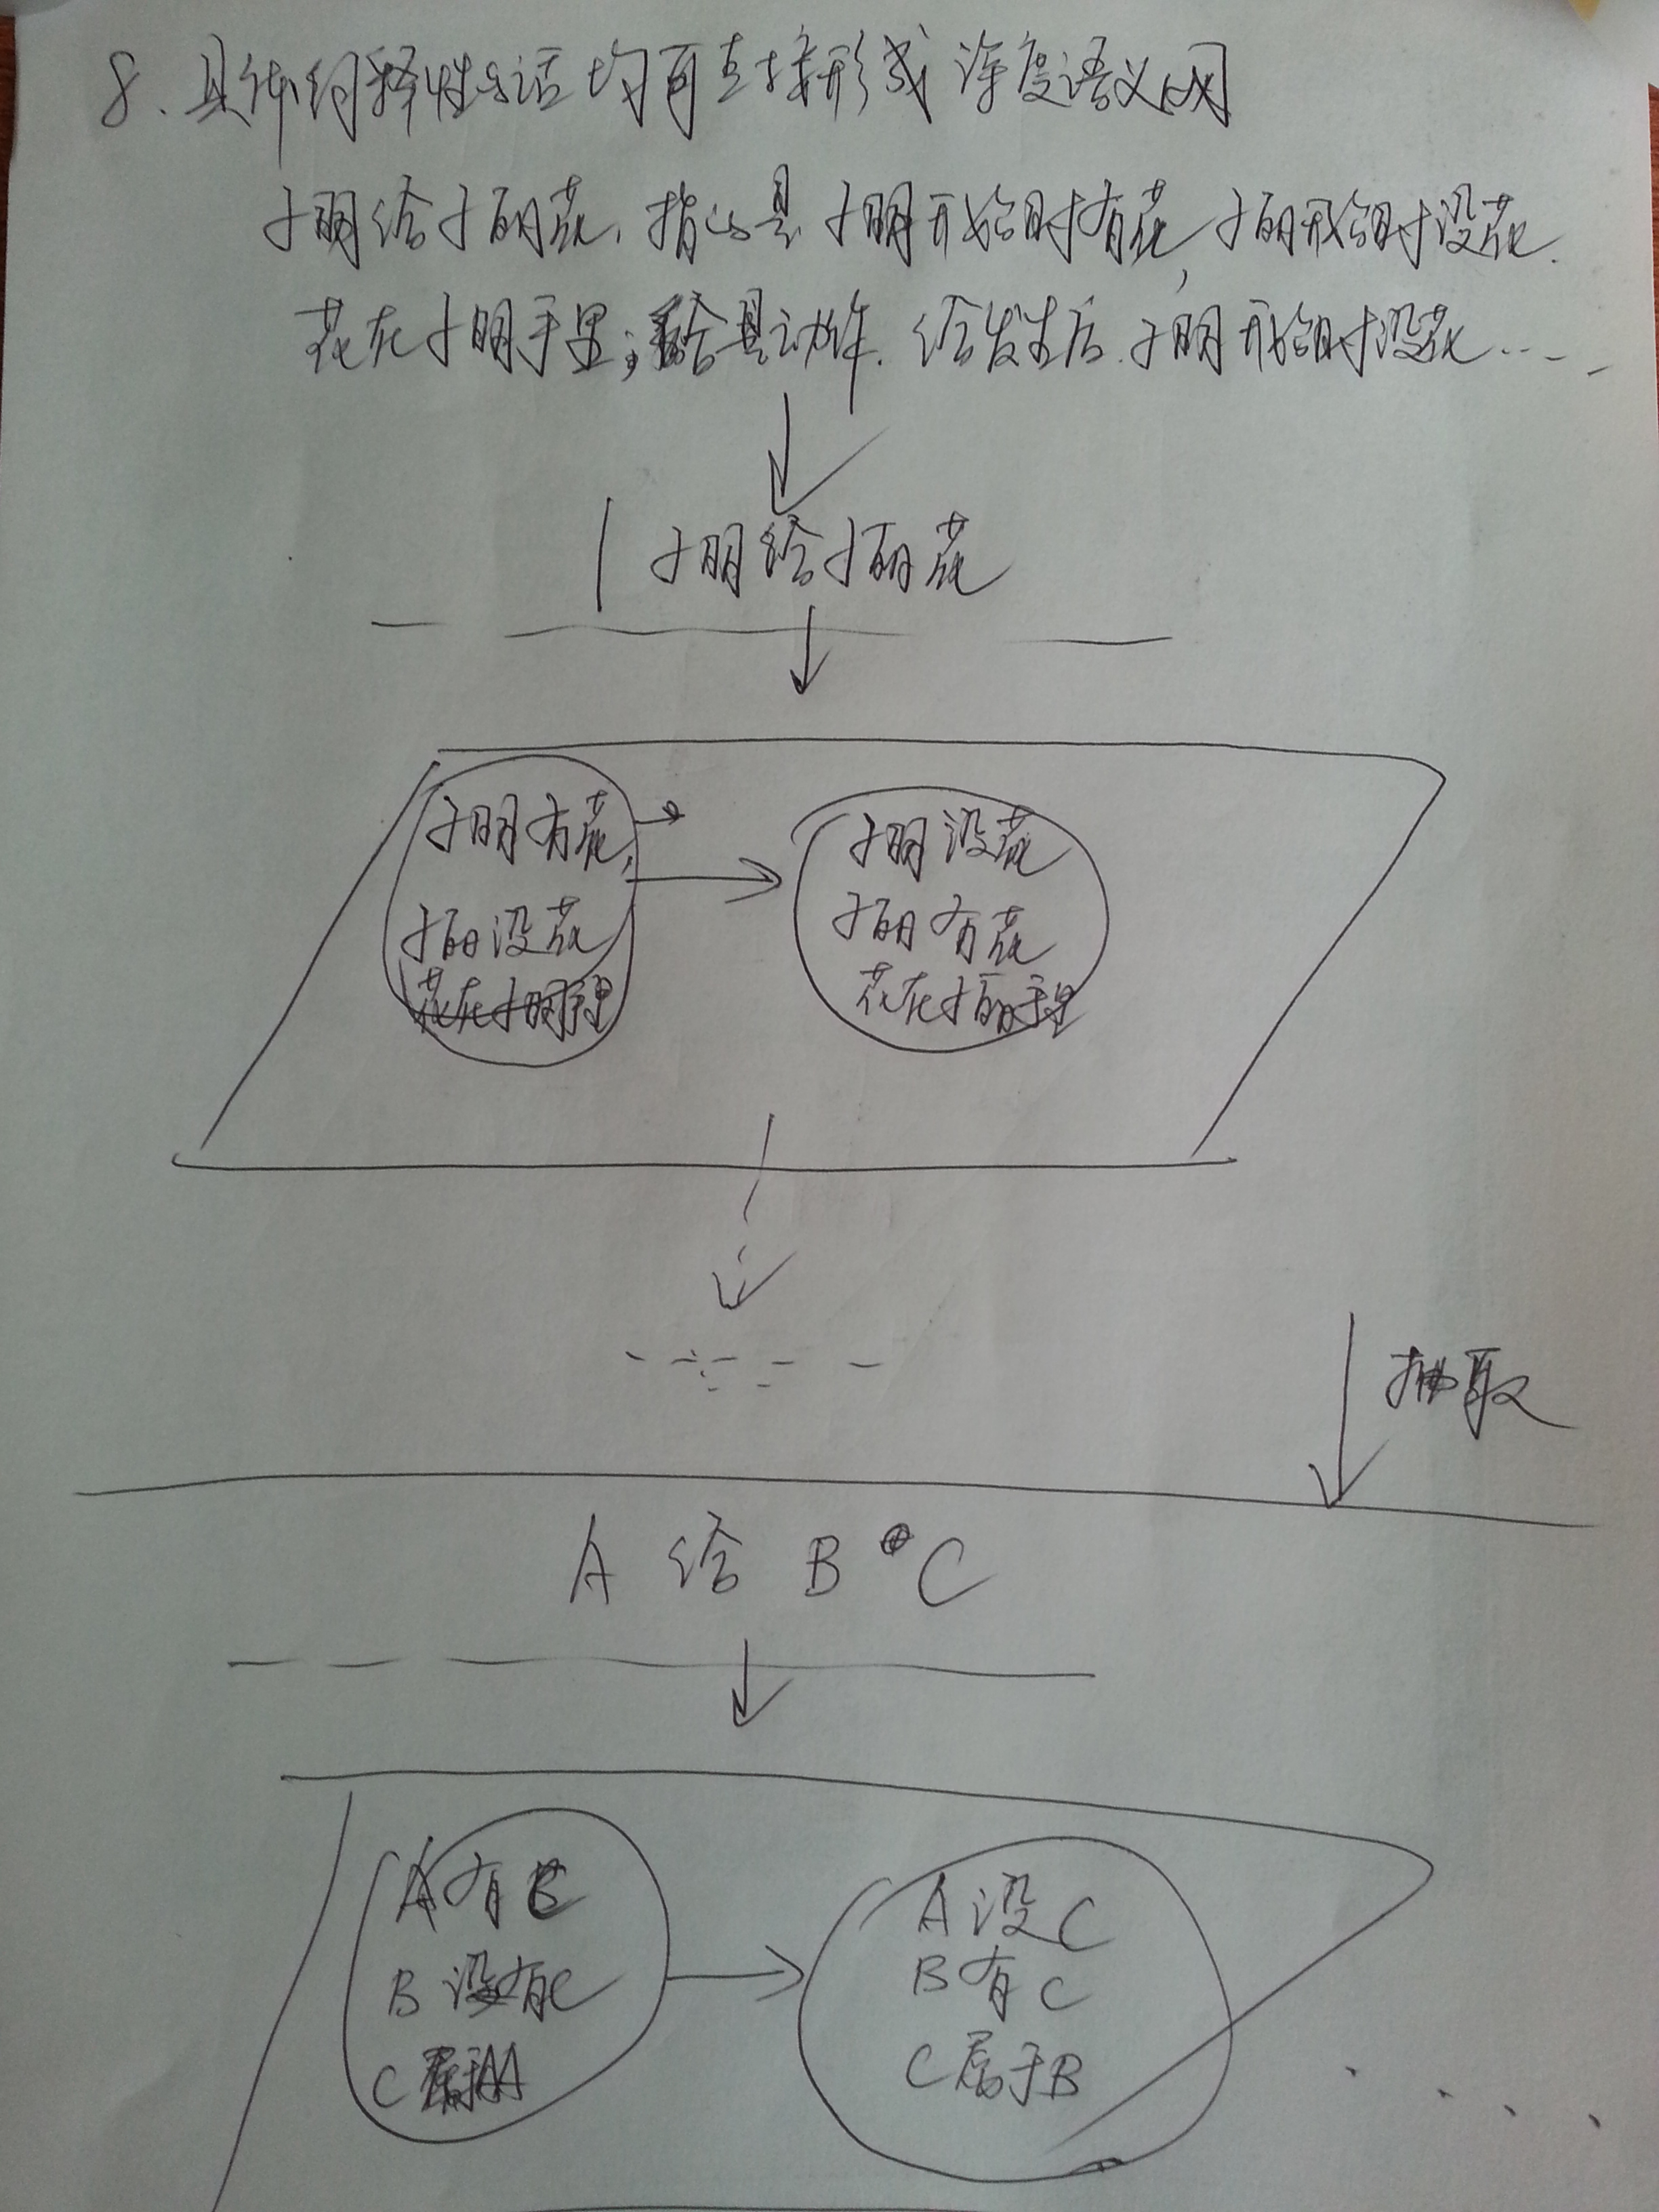 8. 具体的释性的话均可直接形成深度语义网
小明给小丽花,指的是小明开始时有花,小丽开始时没花.
花在小明手里;给是动作.给发生后.小明开始时没花……
小明给小丽花
小明有花,
小丽没花
花在小明手里
小明没花
小丽有花
花在小丽手里
抽取
A 给 B C
A有C
B没有C
C属于A
A没C
B有C
C属于B